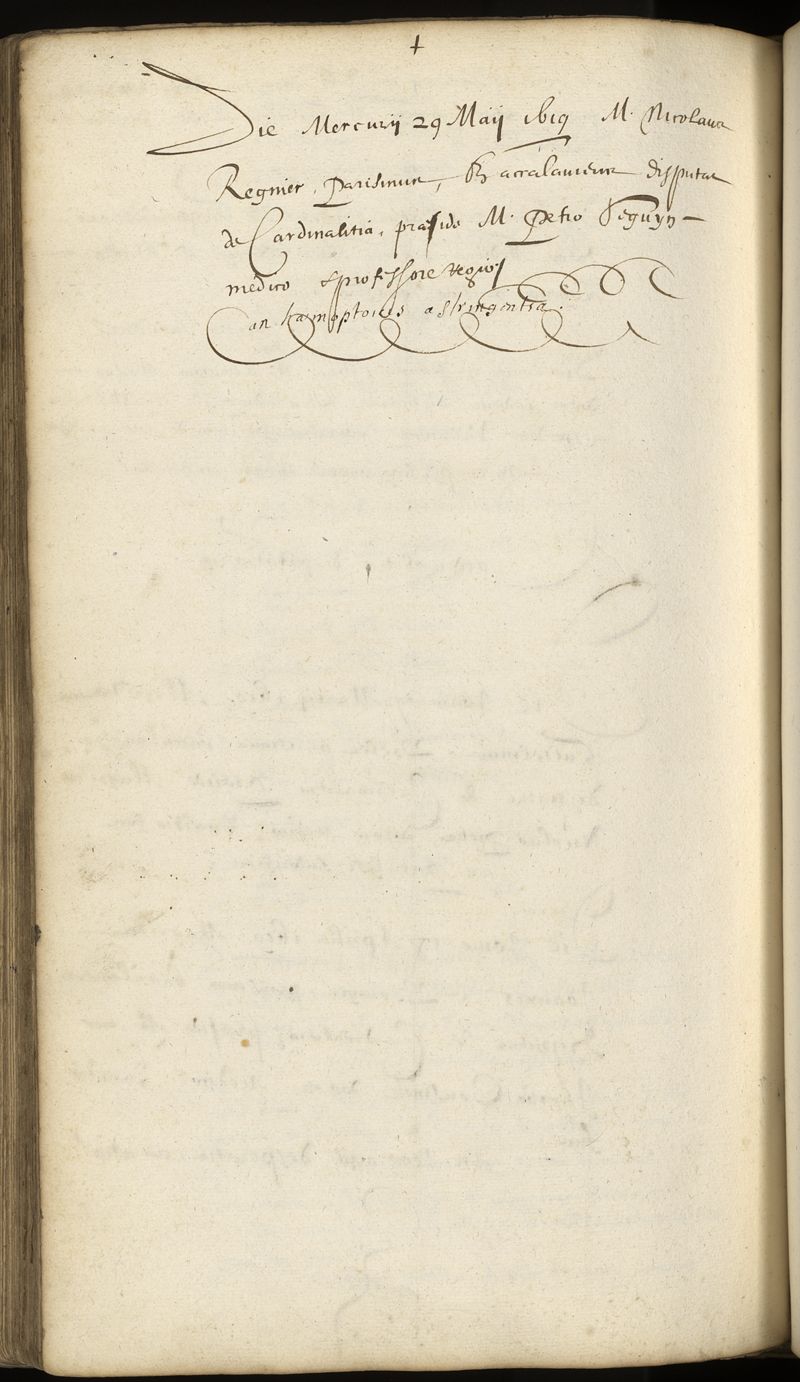 +
Die Mercurij 29 Maij 1619 M. Nicolaus
Regnier, Parisinus, Baccalaureus disputat
de Cardinalitia, præside M. Petro Seguyn
medico & professore regio
an hæmoptoicis astringentia.